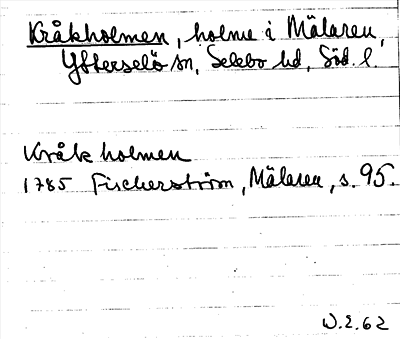 Kråkholmen, holme i Mälaren,
Ytterselö sn, Selebo hd, Söd. l.
Kråkholmen
1785 Fischerström, Mälaren, s. 95.
W.E.62